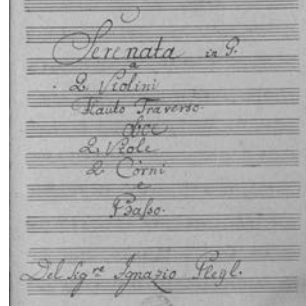 Serenata in G.
a
2. Violini
Flauto Traverso.
Oboe
2. Viole
2. Corni
e
Basso.
Del Sig.re Ignazio Pleyl.